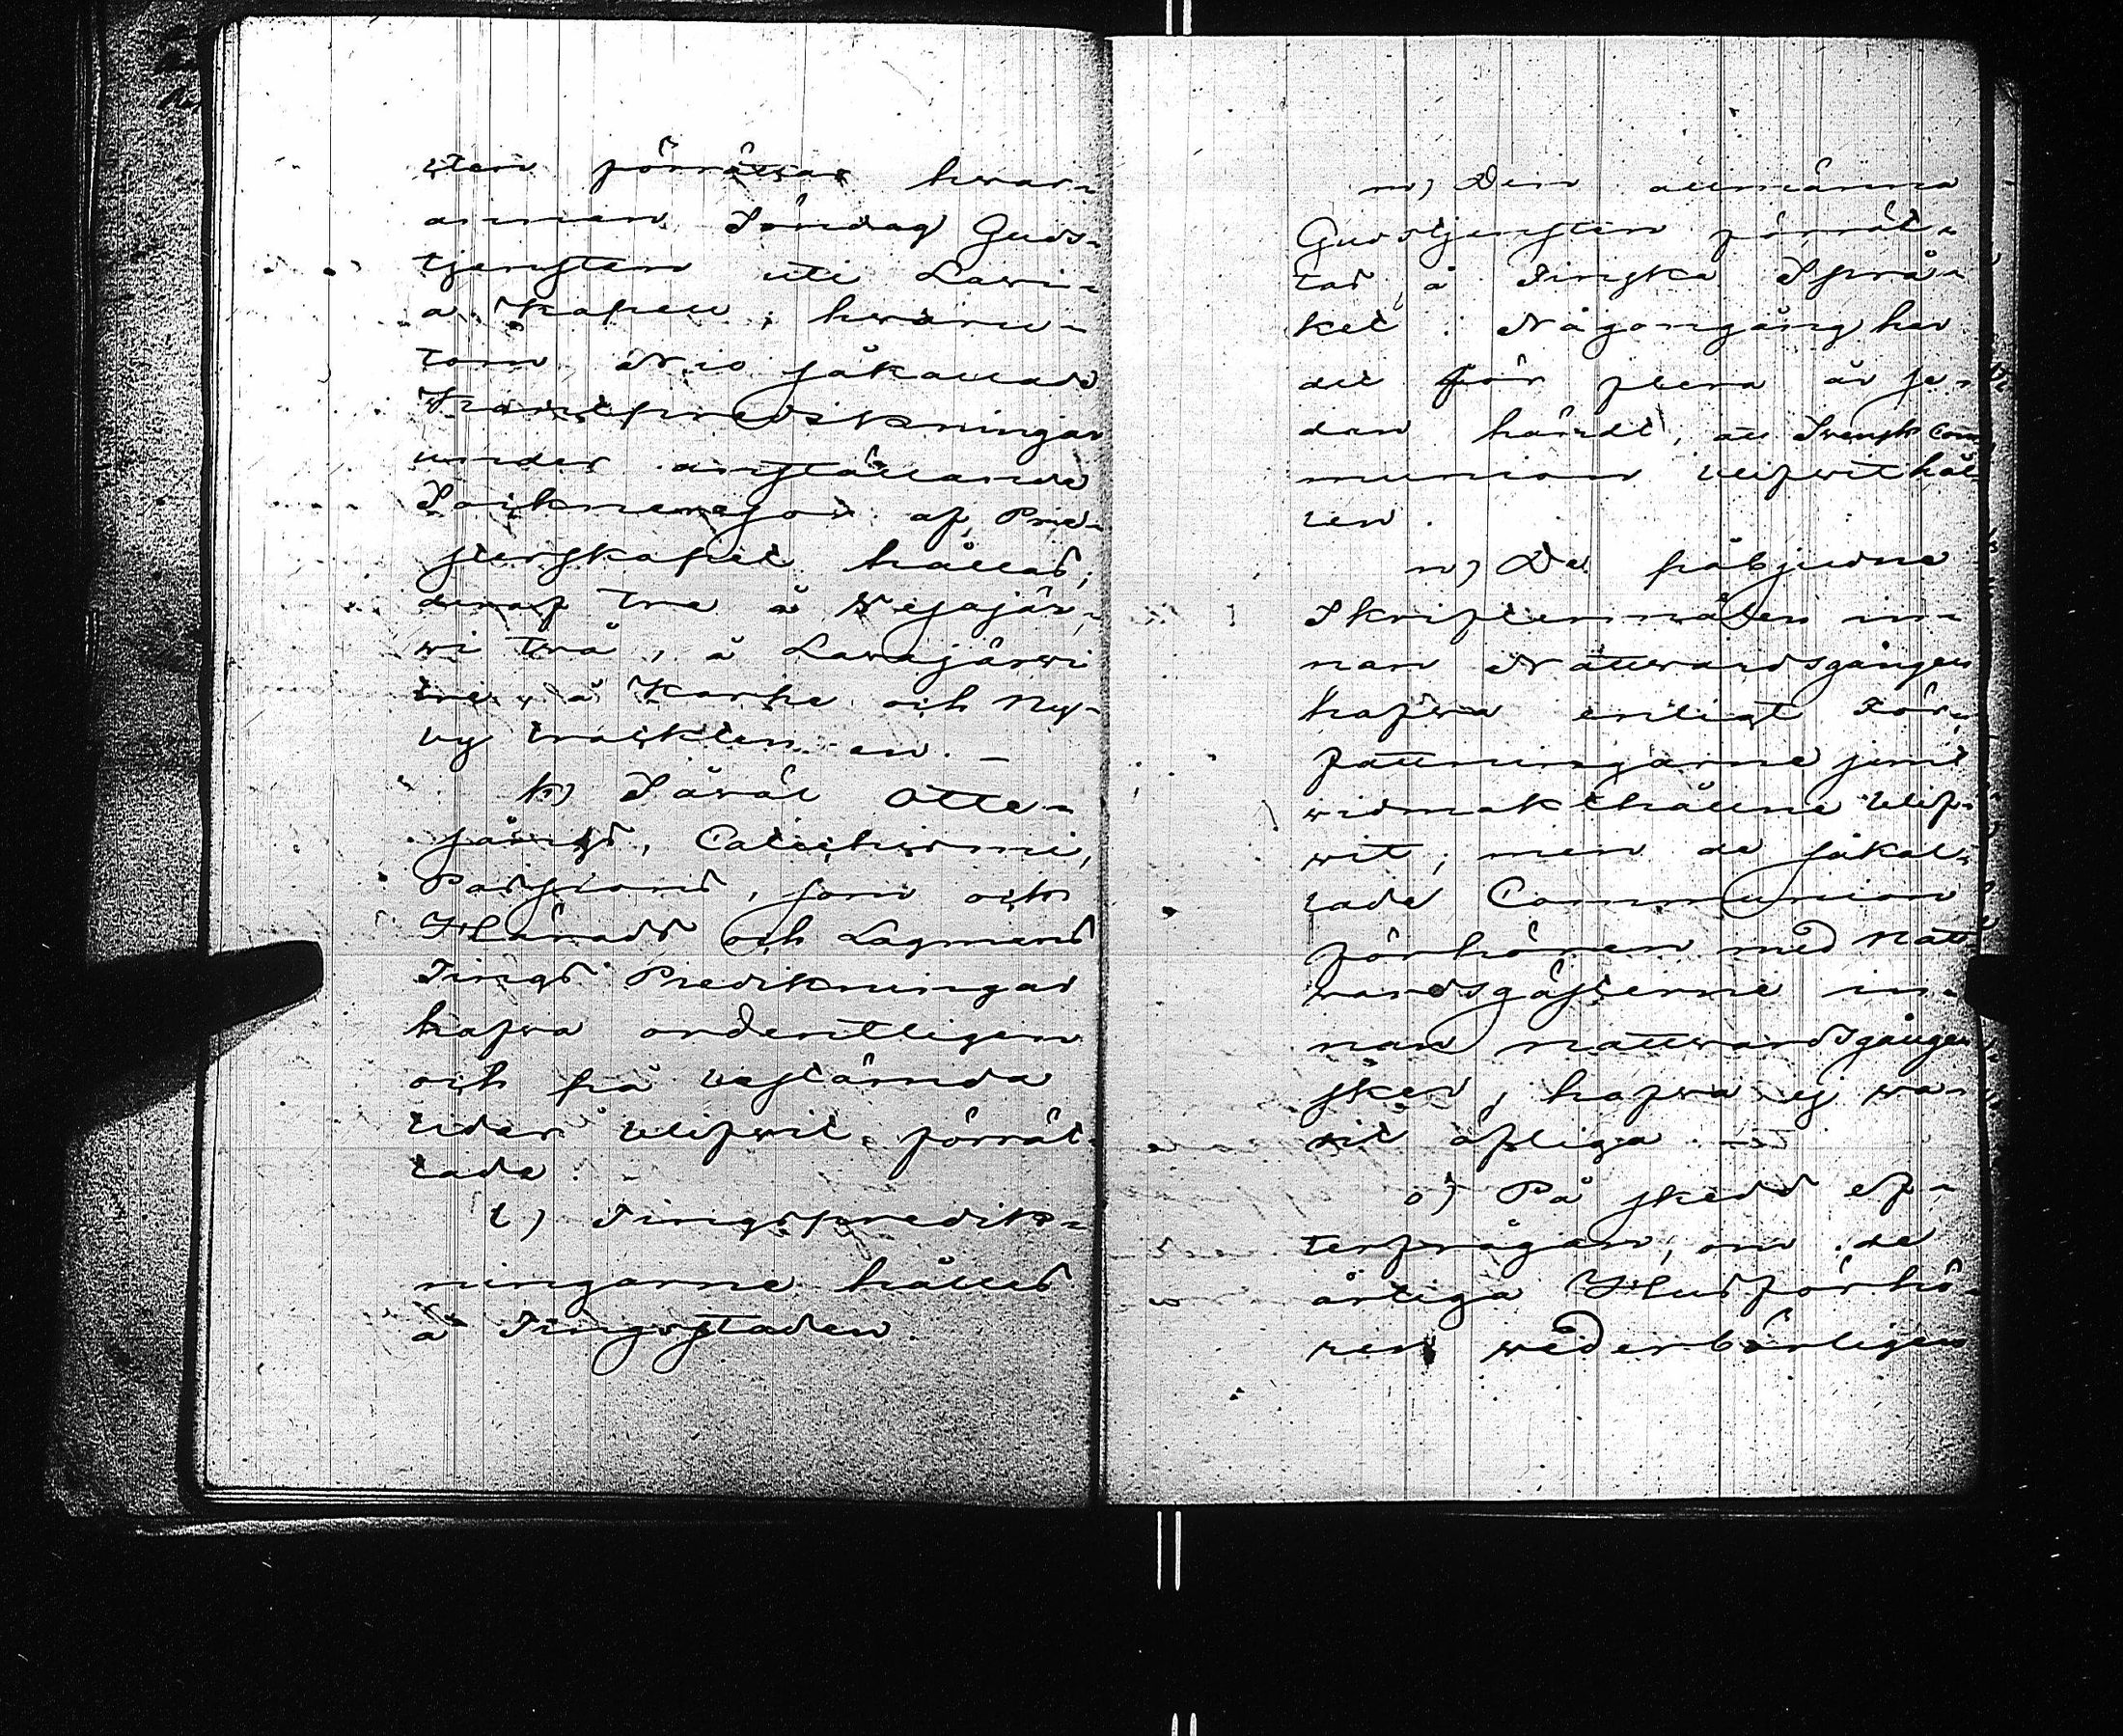 sten förrättas hvar-
annan Söndag Guds-
tjensten uti Lavi-
a Kapell; hvaru-
tom Nio såkallade
Krankpredikningar
under anställande
Sockneresor af Pre-
sterskapet hållas;
deraf tre å Wesajär-
wi två, å Lavajärwi
tre, å Karhe och Ny-
by trackten en. –
k) Såväl Otte-
sångs, Catechismi,
Passions, som ock
Härads och Lagmans
Tings Predikningar
hafva ordentligen
och på bestämda
tider blifvit förrät-
tade.
l) Tingspredik-
ningarne hålles
å Tingsstaden.
m) Den allmänna
Gudstjensten förrät-
tas å Finska Språ-
ket. Någongång har
det för flera år se-
dan händt, att Svensk Com-
munion blifvit hål-
len.
n) De påbjudne
Skriftermålen in-
nan Nattvardsgången
hafva enligt För-
fattningarne sint
vidmakthållne blif-
vit; men de såkal-
lade Communion
förhören med Natt
vardsgästerne in-
nan nattvardsgången
sker, hafva ej va-
rit öfliga.
o) På skedd ef-
terfrågan, om de
årliga Husförhö-
ren vederbörligen